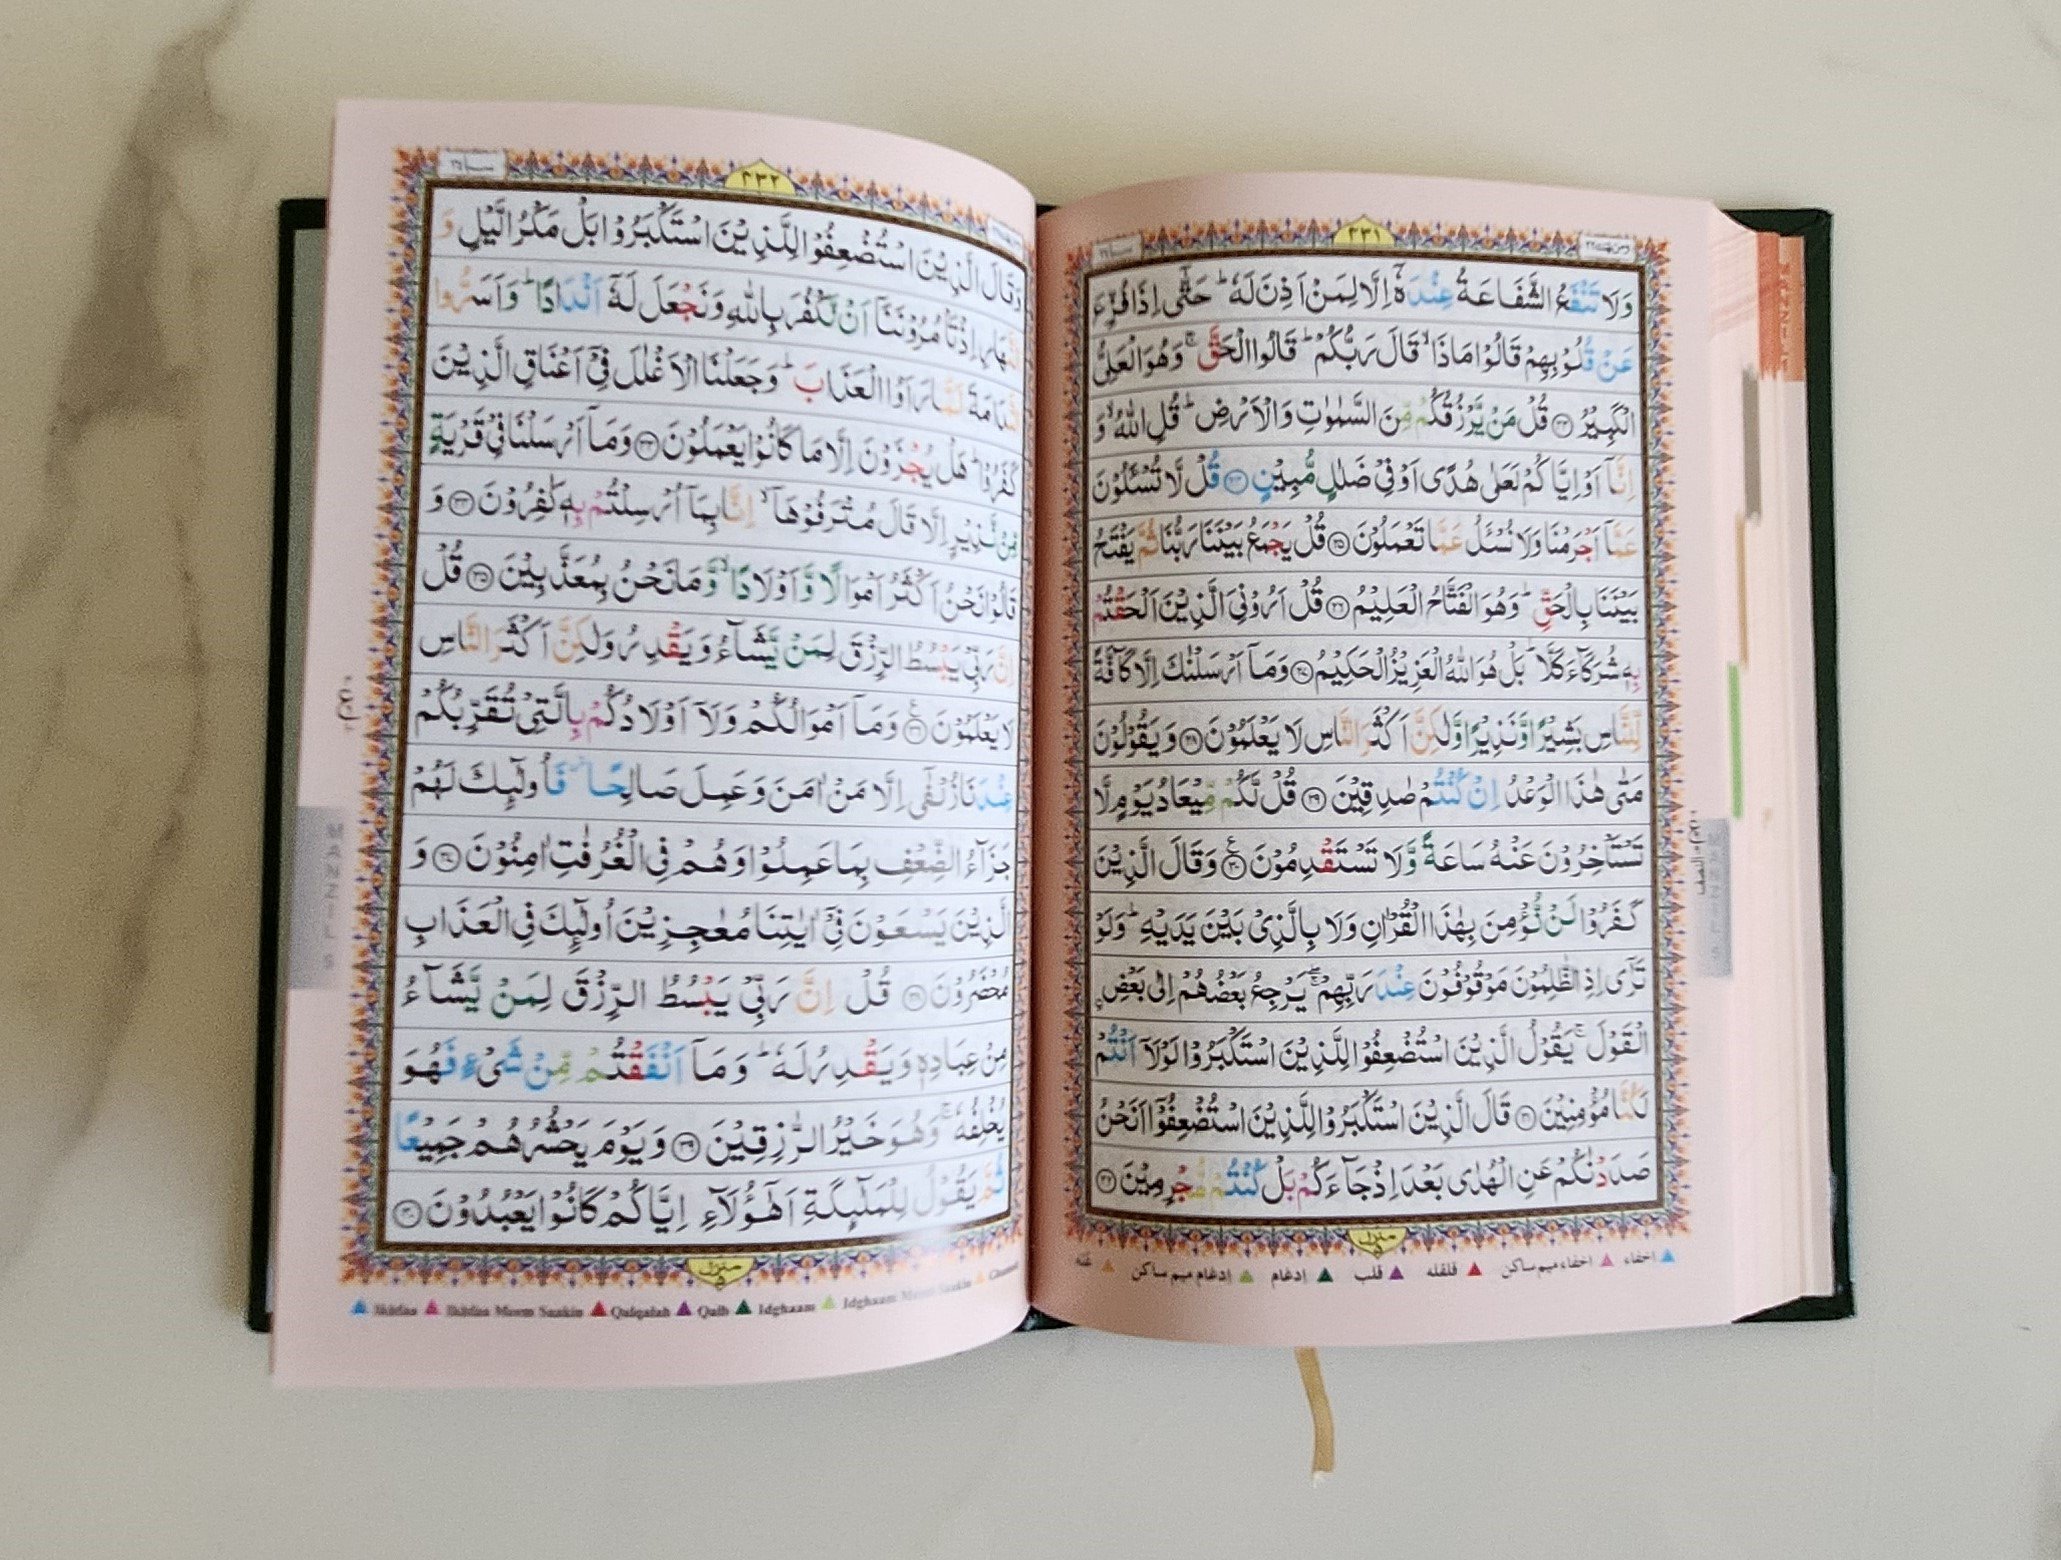 ٤٣١
وَلَا تَنْفَعُ الشَّفَاعَةُ عِنْدَهٗۤ اِلَّا لِمَنْ اَذِنَ لَهٗ ؕ حَتّٰۤى اِذَا فُزِّعَ
عَنْ قُلُوْبِهِمْ قَالُوْا مَاذَا ۙ قَالَ رَبُّكُمْ ؕ قَالُوا الْحَقَّ ۚ وَهُوَ الْعَلِیُّ
الْكَبِیْرُ ﴿۲۳﴾ قُلْ مَنْ یَّرْزُقُكُمْ مِّنَ السَّمٰوٰتِ وَالْاَرْضِ ؕ قُلِ اللّٰهُ ۙ وَ
اِنَّاۤ اَوْ اِیَّاكُمْ لَعَلٰى هُدًى اَوْ فِیْ ضَلٰلٍ مُّبِیْنٍ ﴿۲۴﴾ قُلْ لَّا تُسْـَٔلُوْنَ
عَمَّاۤ اَجْرَمْنَا وَلَا نُسْـَٔلُ عَمَّا تَعْمَلُوْنَ ﴿۲۵﴾ قُلْ یَجْمَعُ بَیْنَنَا رَبُّنَا ثُمَّ یَفْتَحُ
بَیْنَنَا بِالْحَقِّ ؕ وَهُوَ الْفَتَّاحُ الْعَلِیْمُ ﴿۲۶﴾ قُلْ اَرُوْنِیَ الَّذِیْنَ اَلْحَقْتُمْ
بِهٖ شُرَكَآءَ كَلَّا ؕ بَلْ هُوَ اللّٰهُ الْعَزِیْزُ الْحَكِیْمُ ﴿۲۷﴾ وَمَاۤ اَرْسَلْنٰكَ اِلَّا كَآفَّةً
لِّلنَّاسِ بَشِیْرًا وَّنَذِیْرًا وَّلٰكِنَّ اَكْثَرَ النَّاسِ لَا یَعْلَمُوْنَ ﴿۲۸﴾ وَیَقُوْلُوْنَ
مَتٰى هٰذَا الْوَعْدُ اِنْ كُنْتُمْ صٰدِقِیْنَ ﴿۲۹﴾ قُلْ لَّكُمْ مِّیْعَادُ یَوْمٍ لَّا
تَسْتَاْخِرُوْنَ عَنْهُ سَاعَةً وَّلَا تَسْتَقْدِمُوْنَ ﴿۳۰﴾ وَقَالَ الَّذِیْنَ
كَفَرُوْا لَنْ نُّؤْمِنَ بِهٰذَا الْقُرْاٰنِ وَلَا بِالَّذِیْ بَیْنَ یَدَیْهِ ؕ وَلَوْ
تَرٰۤى اِذِ الظّٰلِمُوْنَ مَوْقُوْفُوْنَ عِنْدَ رَبِّهِمْ ۚۖ یَرْجِعُ بَعْضُهُمْ اِلٰى بَعْضِ ۣ
الْقَوْلَ ۚ یَقُوْلُ الَّذِیْنَ اسْتُضْعِفُوْا لِلَّذِیْنَ اسْتَكْبَرُوْا لَوْلَاۤ اَنْتُمْ
لَكُنَّا مُؤْمِنِیْنَ ﴿۳۱﴾ قَالَ الَّذِیْنَ اسْتَكْبَرُوْا لِلَّذِیْنَ اسْتُضْعِفُوْۤا اَنَحْنُ
صَدَدْنٰكُمْ عَنِ الْهُدٰى بَعْدَ اِذْ جَآءَكُمْ بَلْ كُنْتُمْ مُّجْرِمِیْنَ ﴿۳۲﴾
منزل ۵
اخفاء اخفاء میم ساکن قلقله قلب إدغام إدغام میم ساکن غنه
سبا ٣٤
٤٣٢
وَقَالَ الَّذِیْنَ اسْتُضْعِفُوْا لِلَّذِیْنَ اسْتَكْبَرُوْا بَلْ مَكْرُ الَّیْلِ وَ
النَّهَارِ اِذْ تَاْمُرُوْنَنَاۤ اَنْ نَّكْفُرَ بِاللّٰهِ وَنَجْعَلَ لَهٗۤ اَنْدَادًا ؕ وَاَسَرُّوا
النَّدَامَةَ لَمَّا رَاَوُا الْعَذَابَ ؕ وَجَعَلْنَا الْاَغْلٰلَ فِیْۤ اَعْنَاقِ الَّذِیْنَ
كَفَرُوْا ؕ هَلْ یُجْزَوْنَ اِلَّا مَا كَانُوْا یَعْمَلُوْنَ ﴿۳۳﴾ وَمَاۤ اَرْسَلْنَا فِیْ قَرْیَةٍ
مِّنْ نَّذِیْرٍ اِلَّا قَالَ مُتْرَفُوْهَاۤ ۙ اِنَّا بِمَاۤ اُرْسِلْتُمْ بِهٖ كٰفِرُوْنَ ﴿۳۴﴾ وَ
قَالُوْا نَحْنُ اَكْثَرُ اَمْوَالًا وَّاَوْلَادًا ۙ وَّمَا نَحْنُ بِمُعَذَّبِیْنَ ﴿۳۵﴾ قُلْ
اِنَّ رَبِّیْ یَبْسُطُ الرِّزْقَ لِمَنْ یَّشَآءُ وَیَقْدِرُ وَلٰكِنَّ اَكْثَرَ النَّاسِ
لَا یَعْلَمُوْنَ ﴿۳۶﴾ وَمَاۤ اَمْوَالُكُمْ وَلَاۤ اَوْلَادُكُمْ بِالَّتِیْ تُقَرِّبُكُمْ
عِنْدَنَا زُلْفٰۤى اِلَّا مَنْ اٰمَنَ وَعَمِلَ صَالِحًا ۫ فَاُولٰٓىِٕكَ لَهُمْ
جَزَآءُ الضِّعْفِ بِمَا عَمِلُوْا وَهُمْ فِی الْغُرُفٰتِ اٰمِنُوْنَ ﴿۳۷﴾ وَ
الَّذِیْنَ یَسْعَوْنَ فِیْۤ اٰیٰتِنَا مُعٰجِزِیْنَ اُولٰٓىِٕكَ فِی الْعَذَابِ
مُحْضَرُوْنَ ﴿۳۸﴾ قُلْ اِنَّ رَبِّیْ یَبْسُطُ الرِّزْقَ لِمَنْ یَّشَآءُ
مِنْ عِبَادِهٖ وَیَقْدِرُ لَهٗ ؕ وَمَاۤ اَنْفَقْتُمْ مِّنْ شَیْءٍ فَهُوَ
یُخْلِفُهٗ ۚ وَهُوَ خَیْرُ الرّٰزِقِیْنَ ﴿۳۹﴾ وَیَوْمَ یَحْشُرُهُمْ جَمِیْعًا
ثُمَّ یَقُوْلُ لِلْمَلٰٓىِٕكَةِ اَهٰۤؤُلَآءِ اِیَّاكُمْ كَانُوْا یَعْبُدُوْنَ ﴿۴۰﴾
منزل ۵
MANZIL 5
Ikhfaa Ikhfaa Meem Saakin Qalqalah Qalb Idghaam Idghaam Meem Saakin Ghunna